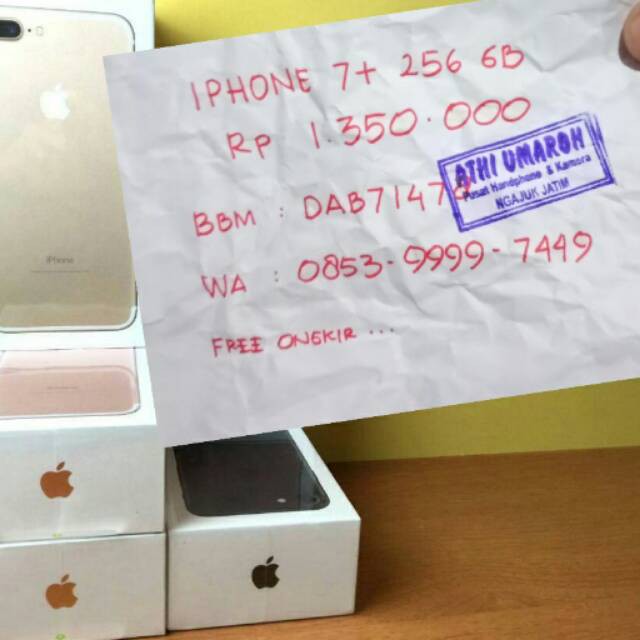 iPhone
IPHONE 7+ 256 GB
RP 1.350.000
ATHI UMAROH
Pusat Handphone & Kamera
NGAJUK JATIM
BBM : DAB7147
WA : 0853-9999-7449
FREE ONGKIR ...